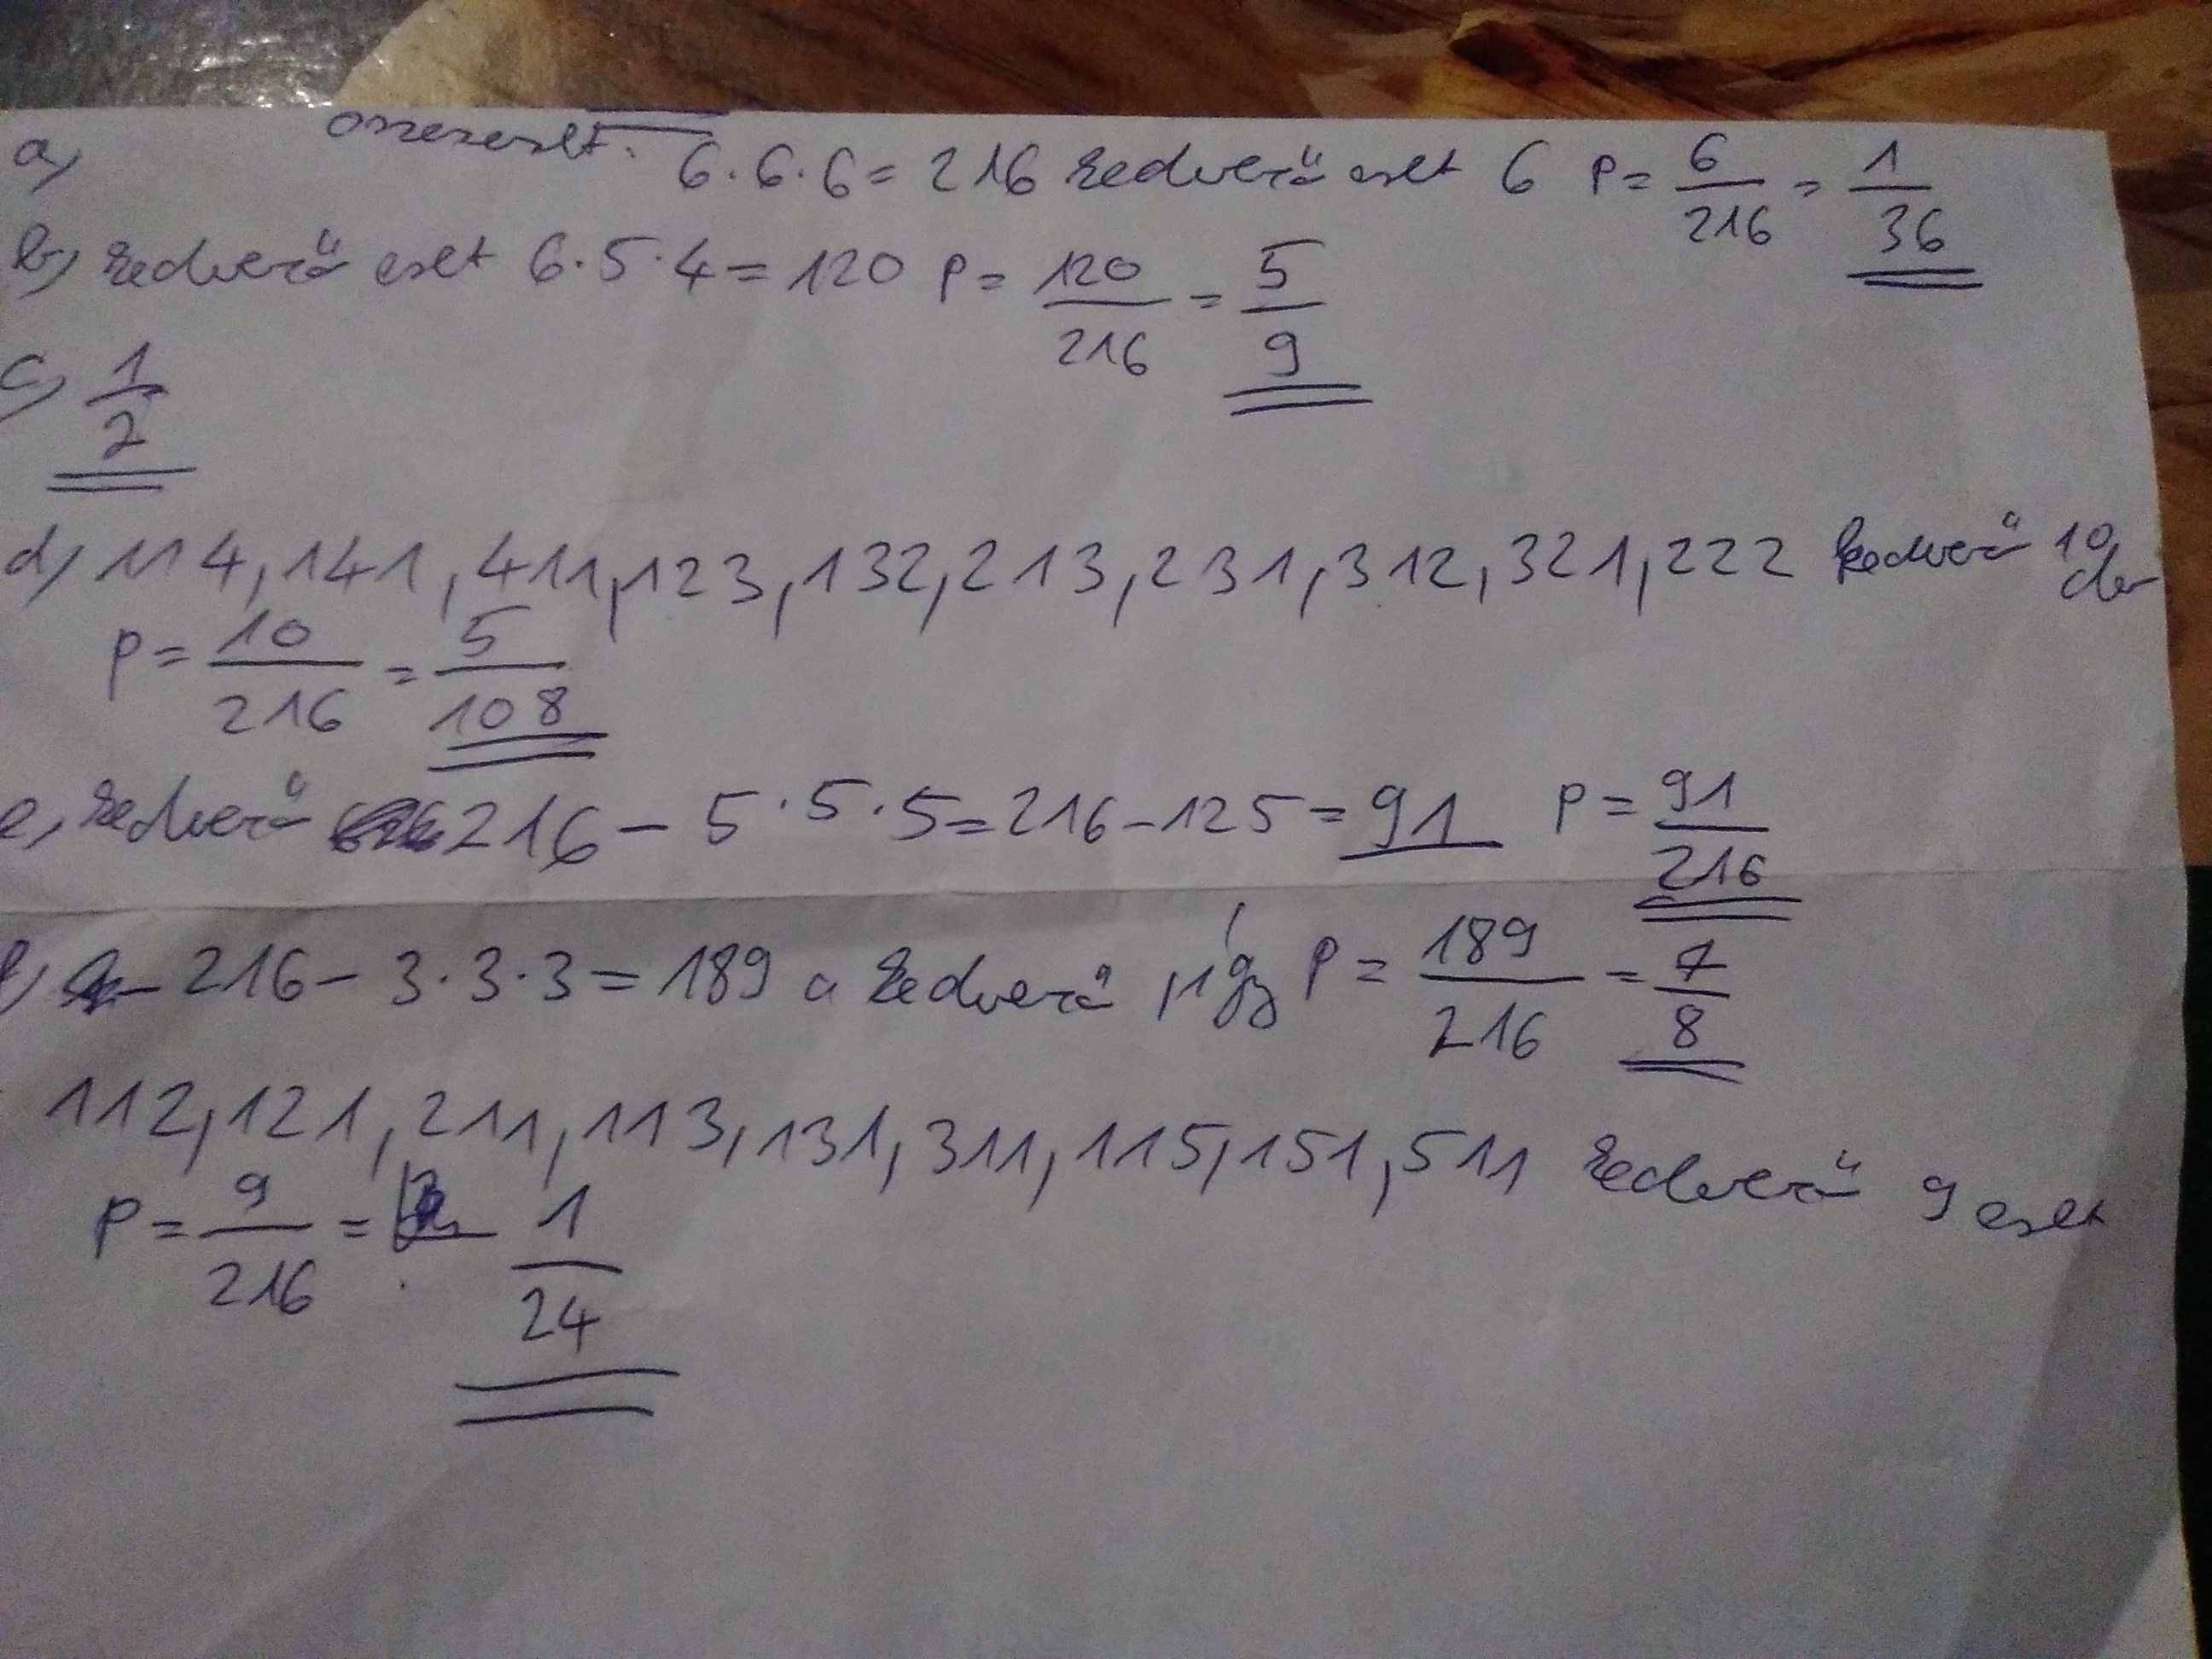 a) összeset: 6·6·6 = 216 kedvező eset 6 P = 6/216 = 1/36
b) kedvező eset 6·5·4 = 120 P = 120/216 = 5/9
c) 1/2
d) 114, 141, 411, 123, 132, 213, 231, 312, 321, 222 kedvező 10 db
P = 10/216 = 5/108
e, kedvező 216 - 5·5·5 = 216 - 125 = 91 P = 91/216
f) 216 - 3·3·3 = 189 a kedvező, így P = 189/216 = 7/8
112, 121, 211, 113, 131, 311, 115, 151, 511 kedvező 9 eset
P = 9/216 = 1/24